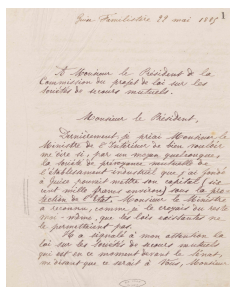 Guise Familistère 29 mai 1885
1
A Monsieur le Président de la
Commission du projet de loi sur les
Sociétés de secours mutuels.
Monsieur le Président,
Dernièrement je priai Monsieur le
Ministre de l'Intérieur de bien vouloir
me dire si, par un moyen quelconque,
la société de prévoyance mutuelle de
l'établissement industriel que j'ai fondé
à Guise pouvait mettre son capital (six
cent mille francs environ) sous la pro-
tection de l'État. Monsieur le Ministre
a reconnu, comme je le croyais du reste
moi-même, que les lois existantes ne
le permettaient pas.
Il a signalé à mon attention la
loi sur les Sociétés de secours mutuels
qui est en ce moment devant le Sénat,
me disant que ce serait à Vous, Monsieur